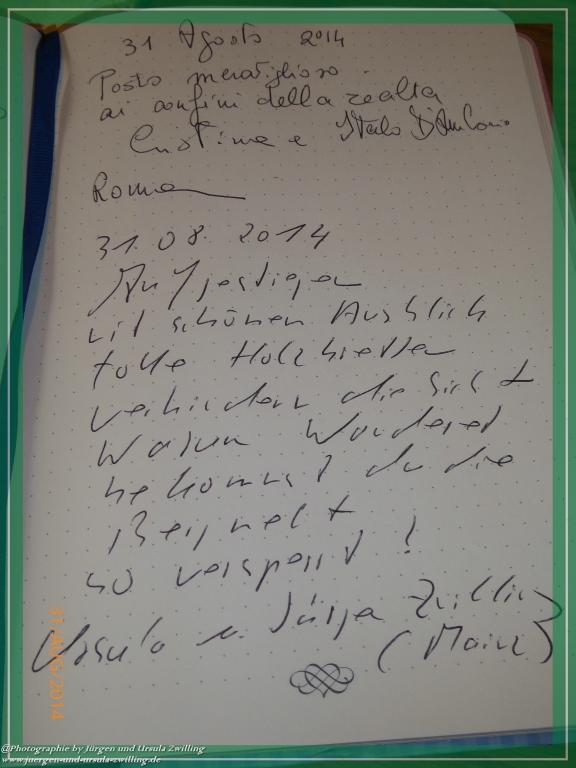 31 Agosto 2014
Posto meraviglioso
ai confini della realtà
Cristina e Italo D'Antonio
Roma
31.08.2014
Aufgestiegen
mit schönen Ausblick
tolle Holzbretter
verhindern die Sicht
Warum Wanderer
bekommst du die
Bergwelt
so versperrt!
Ursula u. Jürgen Zwilling
(Mainz)
31/AUG/2014
@Photographie by Jürgen und Ursula Zwilling
www.juergen-und-ursula-zwilling.de